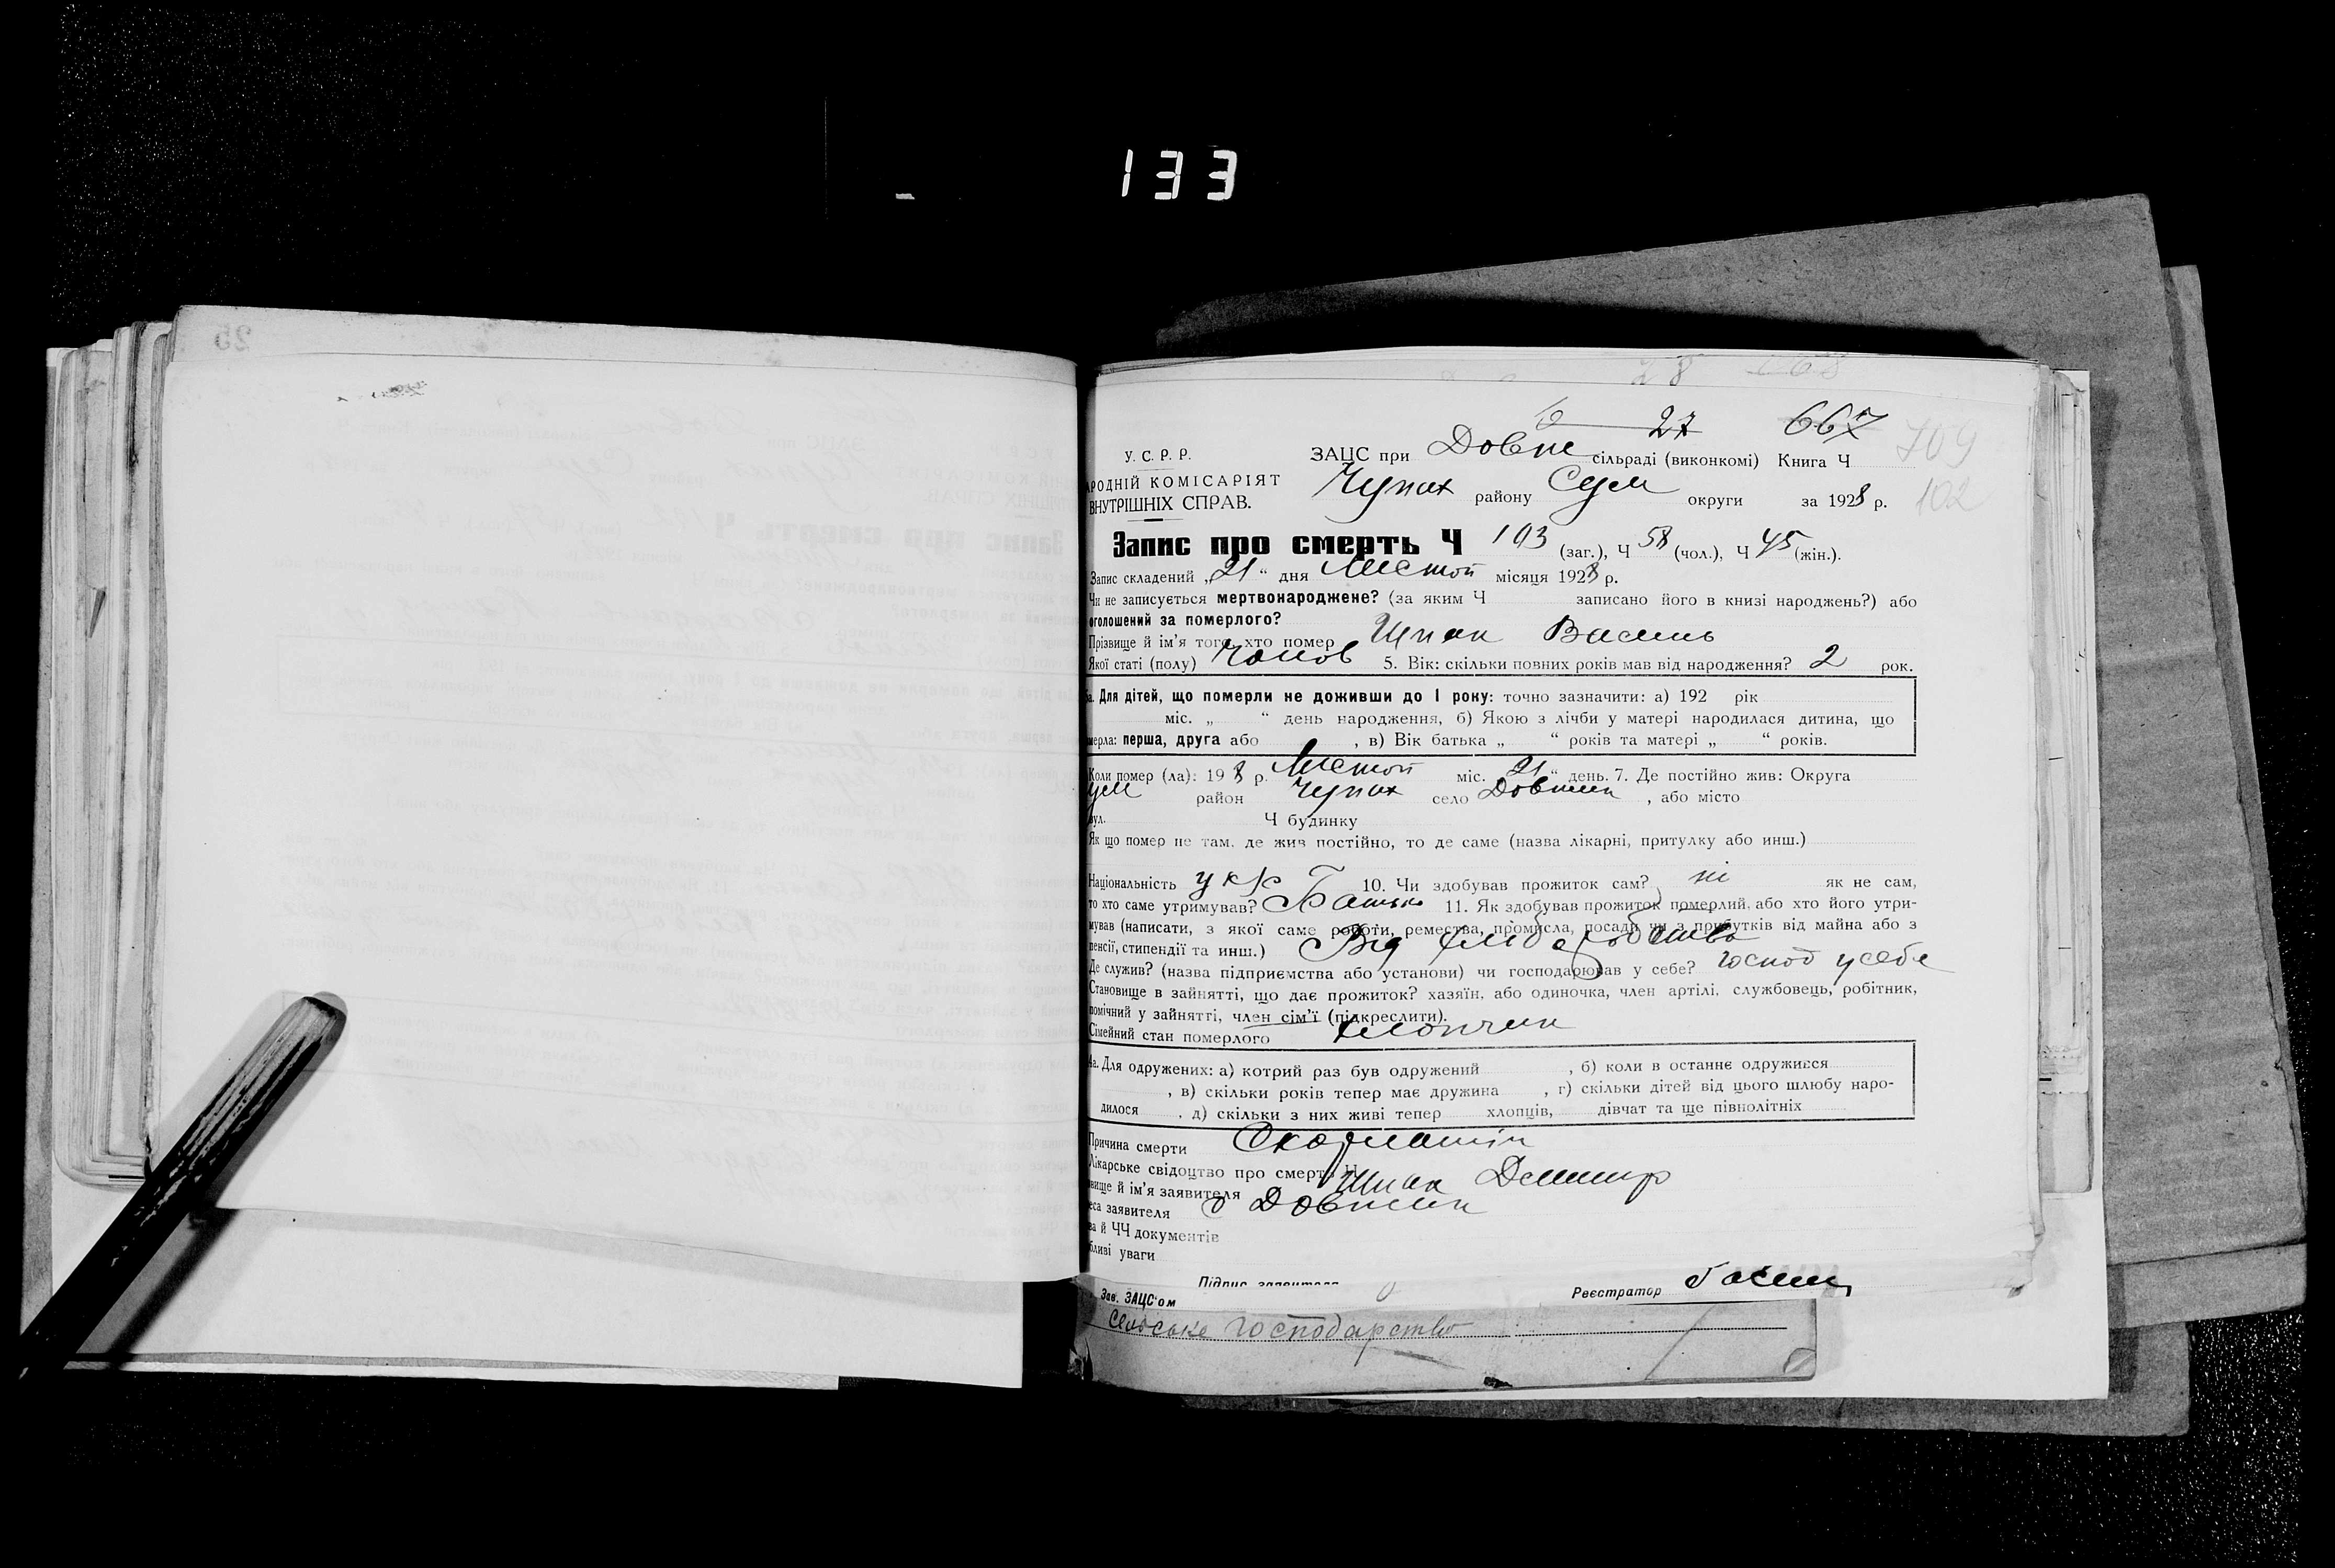 133
25
28 668
27 667
709
102
У. С. Р. Р.
ЗАЦС при Довпе сільраді (виконкомі) Книга Ч
АРОДНІЙ КОМІСАРІЯТ
ВНУТРІШНІХ СПРАВ.
Чупах району Сум округи за 1928 р.
Запис про смерть Ч 103 (заг.), Ч 58 (чол.), Ч 45 (жін.).
Запис складений „21“ дня Листоп місяця 1928 р.
Чи не записується мертвонароджене? (за яким Ч записано його в книзі народжень?) або
оголошений за померлого?
Прізвище й ім'я того, хто помер Шпак Василь
Якої статі (полу) Чолов 5. Вік: скільки повних років мав від народження? 2 рок.
5а. Для дітей, що померли не доживши до 1 року: точно зазначити: а) 192 рік
міс. „ “ день народження, б) Якою з лічби у матері народилася дитина, що
мерла: перша, друга або , в) Вік батька „ “ років та матері „ “ років.
Коли помер (ла): 198 р. Листоп міс. 21 “ день. 7. Де постійно жив: Округа
Сум район Чупах село , або місто
вул. Ч будинку
Як що помер не там, де жив постійно, то де саме (назва лікарні, притулку або инш.)
Національність укр 10. Чи здобував прожиток сам? ні як не сам,
то хто саме утримував? Батько 11. Як здобував прожиток померлий, або хто його утри-
мував (написати, з якої саме роботи, ремества, промисла, посади чи з прибутків від майна або з
пенсії, стипендії та инш.) Від
Де служив? (назва підприємства або установи) чи господарював у себе? Господ у себе
Становище в зайнятті, що дає прожиток? хазяїн, або одиночка, член артілі, службовець, робітник,
помічний у зайнятті, член сім'ї (підкреслити).
Сімейний стан померлого Хлопчик
4а. Для одружених: а) котрий раз був одружений , б) коли в останнє одружився
, в) скільки років тепер має дружина , г) скільки дітей від цього шлюбу наро-
дилося , д) скільки з них живі тепер хлопців, дівчат та ще півполітніх
Причина смерти Скорлатін
Лікарське свідоцтво про смерть Ч
вище й ім'я заявителя Шпак Демитр
еса заявителя с
ва й ЧЧ документів
бливі уваги
Підпис заявителя
Зав. ЗАЦС'ом
Реєстратор
Сельське господарство